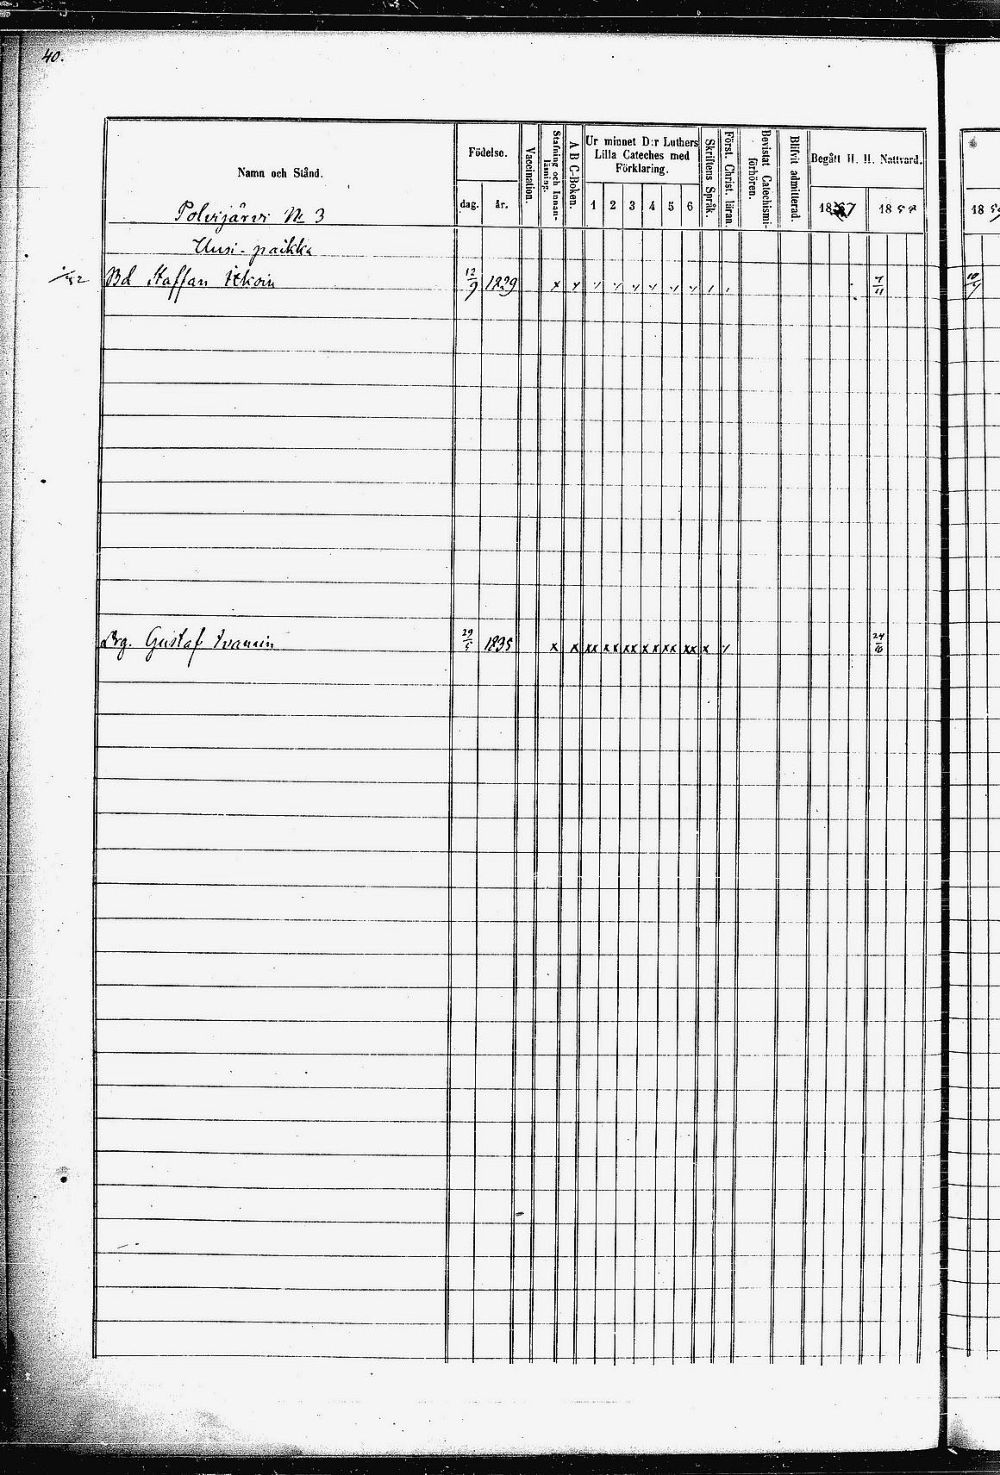 40.
Namn och Stånd. Födelse. dag. år. Vaccination. Stafning och Innanläsning. A B C-Boken. Ur minnet D:r Luthers Lilla Cateches med Förklaring. 1 2 3 4 5 6 Skriftens Språk. Först. Christ. läran. Bevistat Catechismiförhören. Blifvit admitterad. Begått H. H. Nattvard. 1857 1858
Polvijärvi No 3
Uusi-paikka
Bd Staffan 12/9 1839 x x 7/11
Drg. Gustaf Ivanain 29/5 1835 x x xx xx xx xx xx xx x 24/6